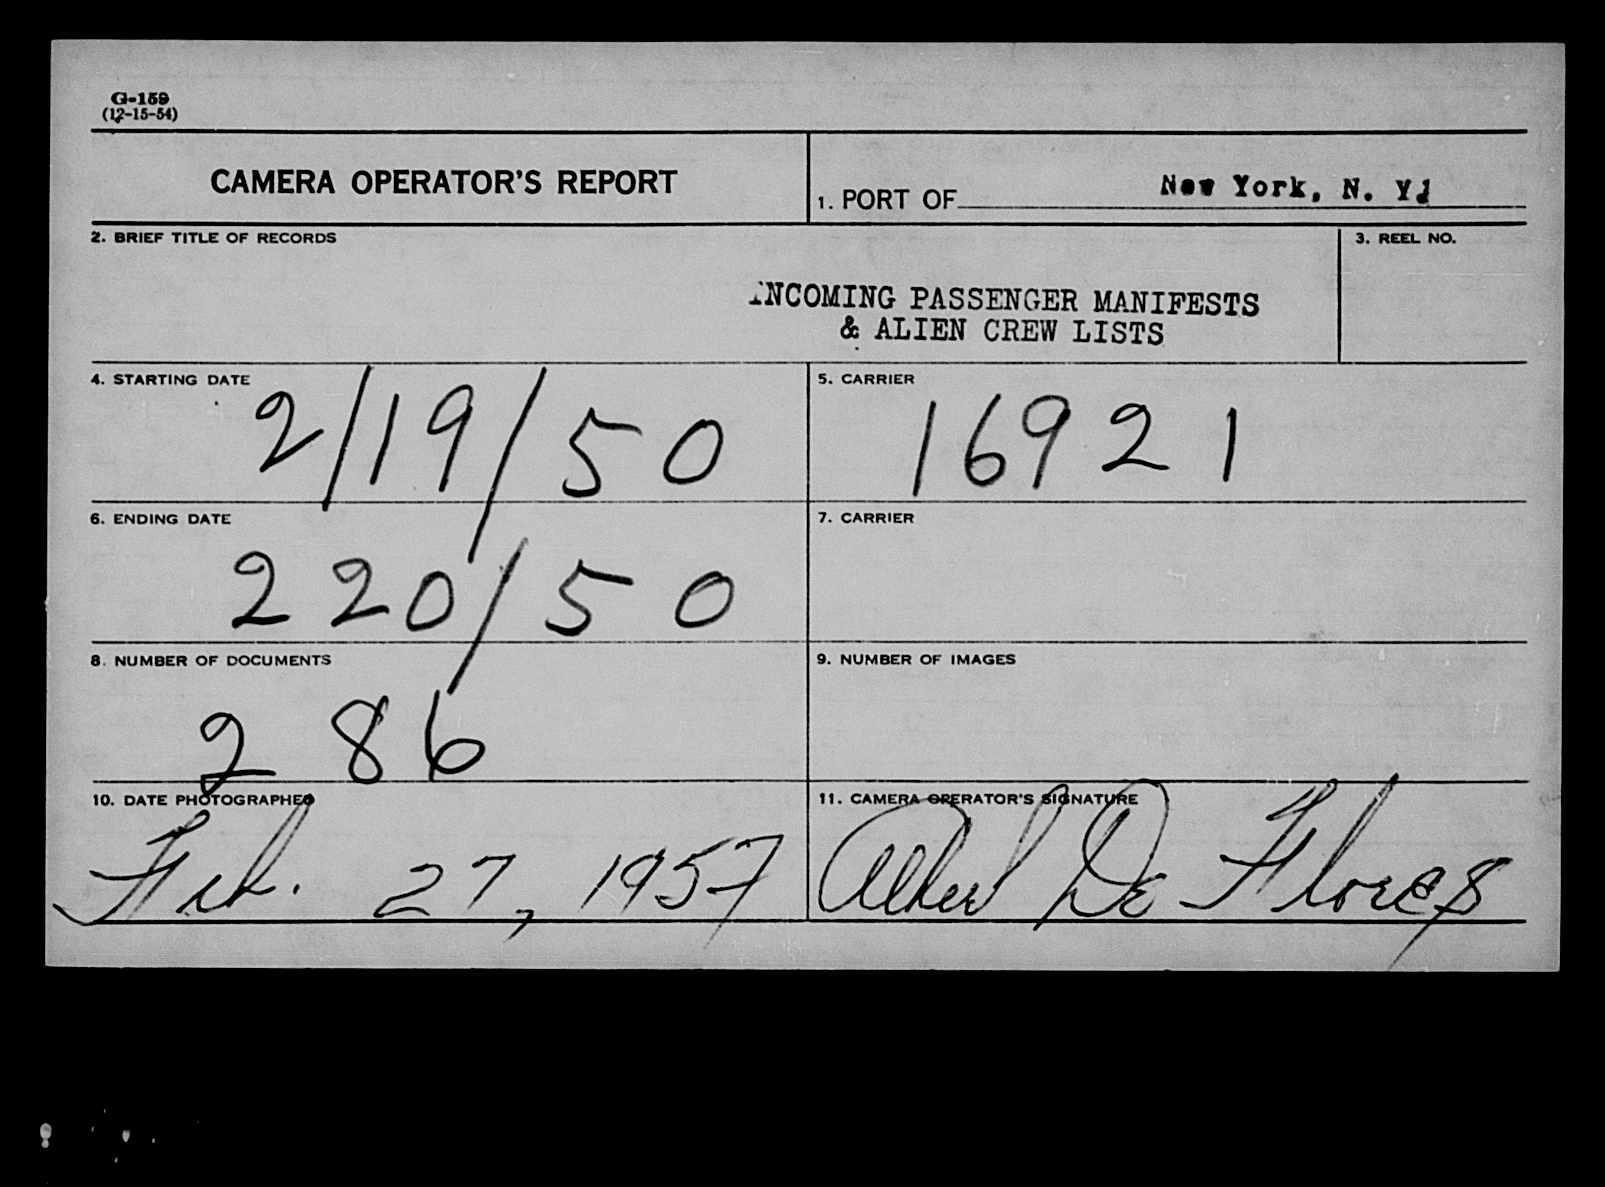 G-159
(12-15-54)
CAMERA OPERATOR'S REPORT
1. PORT OF New York, N. Y.
2. BRIEF TITLE OF RECORDS
INCOMING PASSENGER MANIFESTS
& ALIEN CREW LISTS
3. REEL NO.
4. STARTING DATE
2/19/50
5. CARRIER
16921
6. ENDING DATE
2 20/50
7. CARRIER
8. NUMBER OF DOCUMENTS
286
9. NUMBER OF IMAGES
10. DATE PHOTOGRAPHED
Feb. 27, 1957
11. CAMERA OPERATOR'S SIGNATURE
De Flores